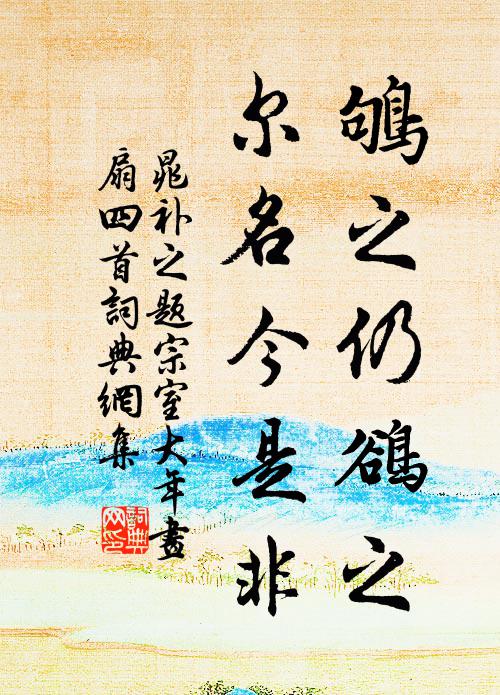 鴝之仍鵒之
尔名今是非
晁补之题宗室大年畫
扇四首詞典網集
詞典
网印